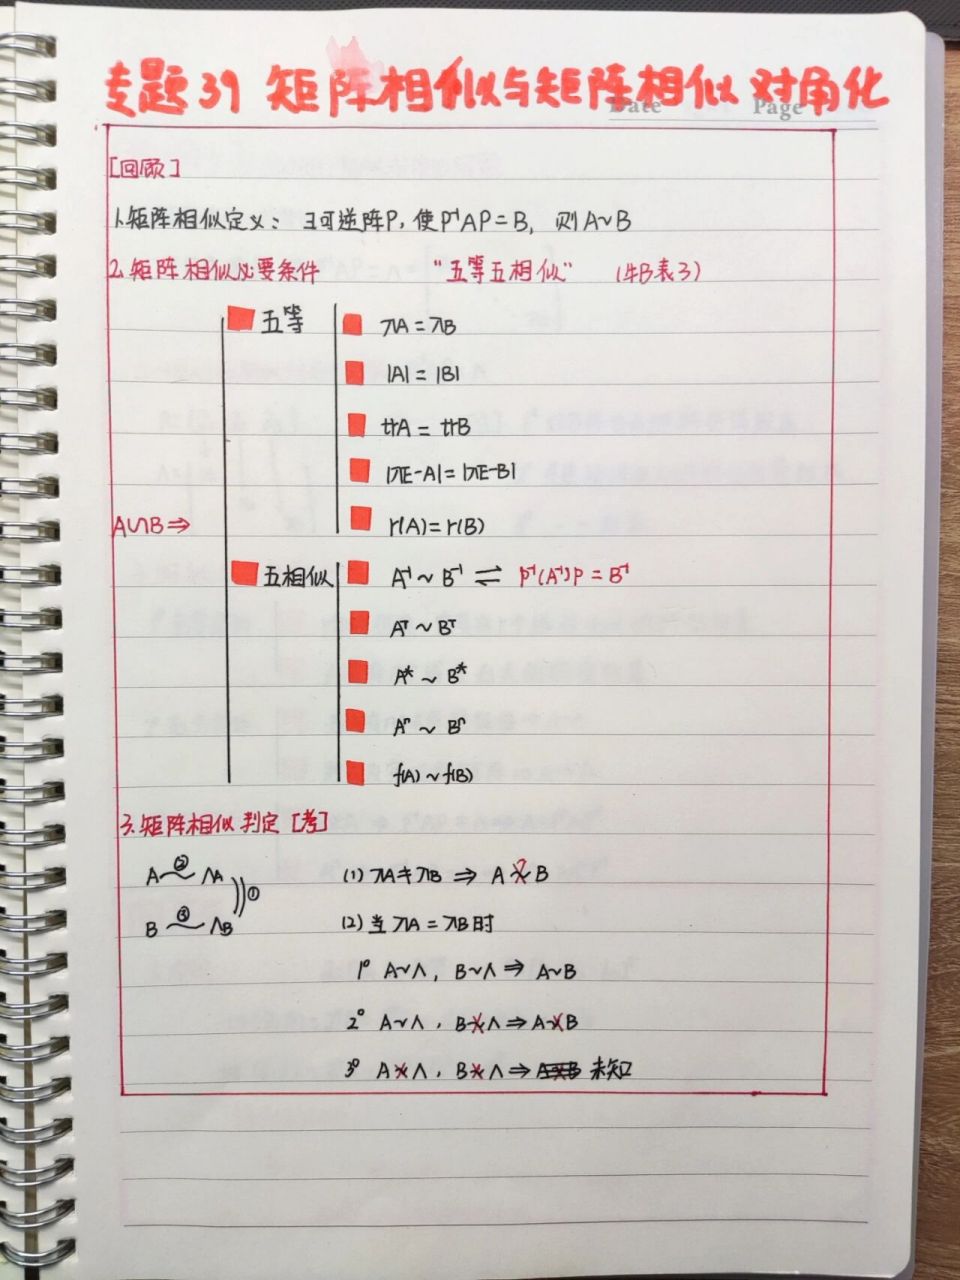 专题39 矩阵相似与矩阵相似对角化
Date Page
[回顾]
1.矩阵相似定义：∃可逆阵P，使P⁻¹AP=B，则A~B
2.矩阵相似必要条件 “五等五相似” （牛B表3）
五等
λA=λB
|A|=|B|
trA=trB
|λE-A|=|λE-B|
r(A)=r(B)
A∽B⇒
五相似
A⁻¹~B⁻¹ ⇌ P⁻¹(A⁻¹)P=B⁻¹
Aᵀ~Bᵀ
A*~B*
Aⁿ~Bⁿ
f(A)~f(B)
3.矩阵相似判定[考]
A ②~ ΛA
①
B ③~ ΛB
(1) λA≠λB ⇒ A≁B
(2) 当λA=λB时
1° A~Λ，B~Λ⇒A~B
2° A~Λ，B≁Λ⇒A≁B
3° A≁Λ，B≁Λ⇒未知